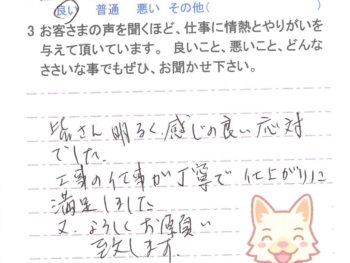 良い 普通 悪い その他(
3 お客さまの声を聞くほど、仕事に情熱とやりがいを
与えて頂いています。 良いこと、悪いこと、どんな
ささいな事でもぜひ、お聞かせ下さい。
皆さん 明るく感じの良い応対
でした。
工事の仕事が丁寧で仕上がりに
満足しました
又、よろしくお願い
致します。